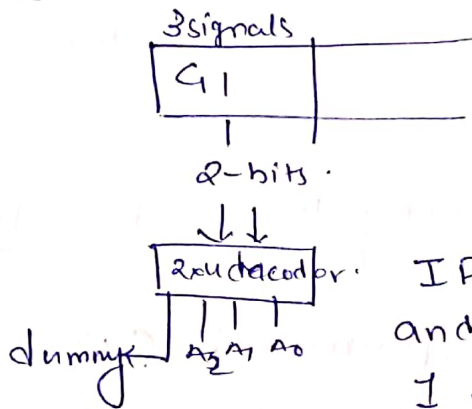 3signals
G1
2-bits.
2x4 decoder. I
dummy A2 A1 A0 and
1